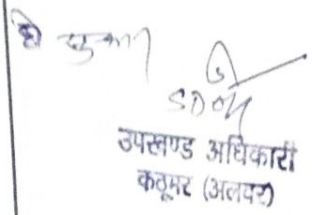 हो चुका
SDM
उपखण्ड अधिकारी
कठूमर (अलवर)